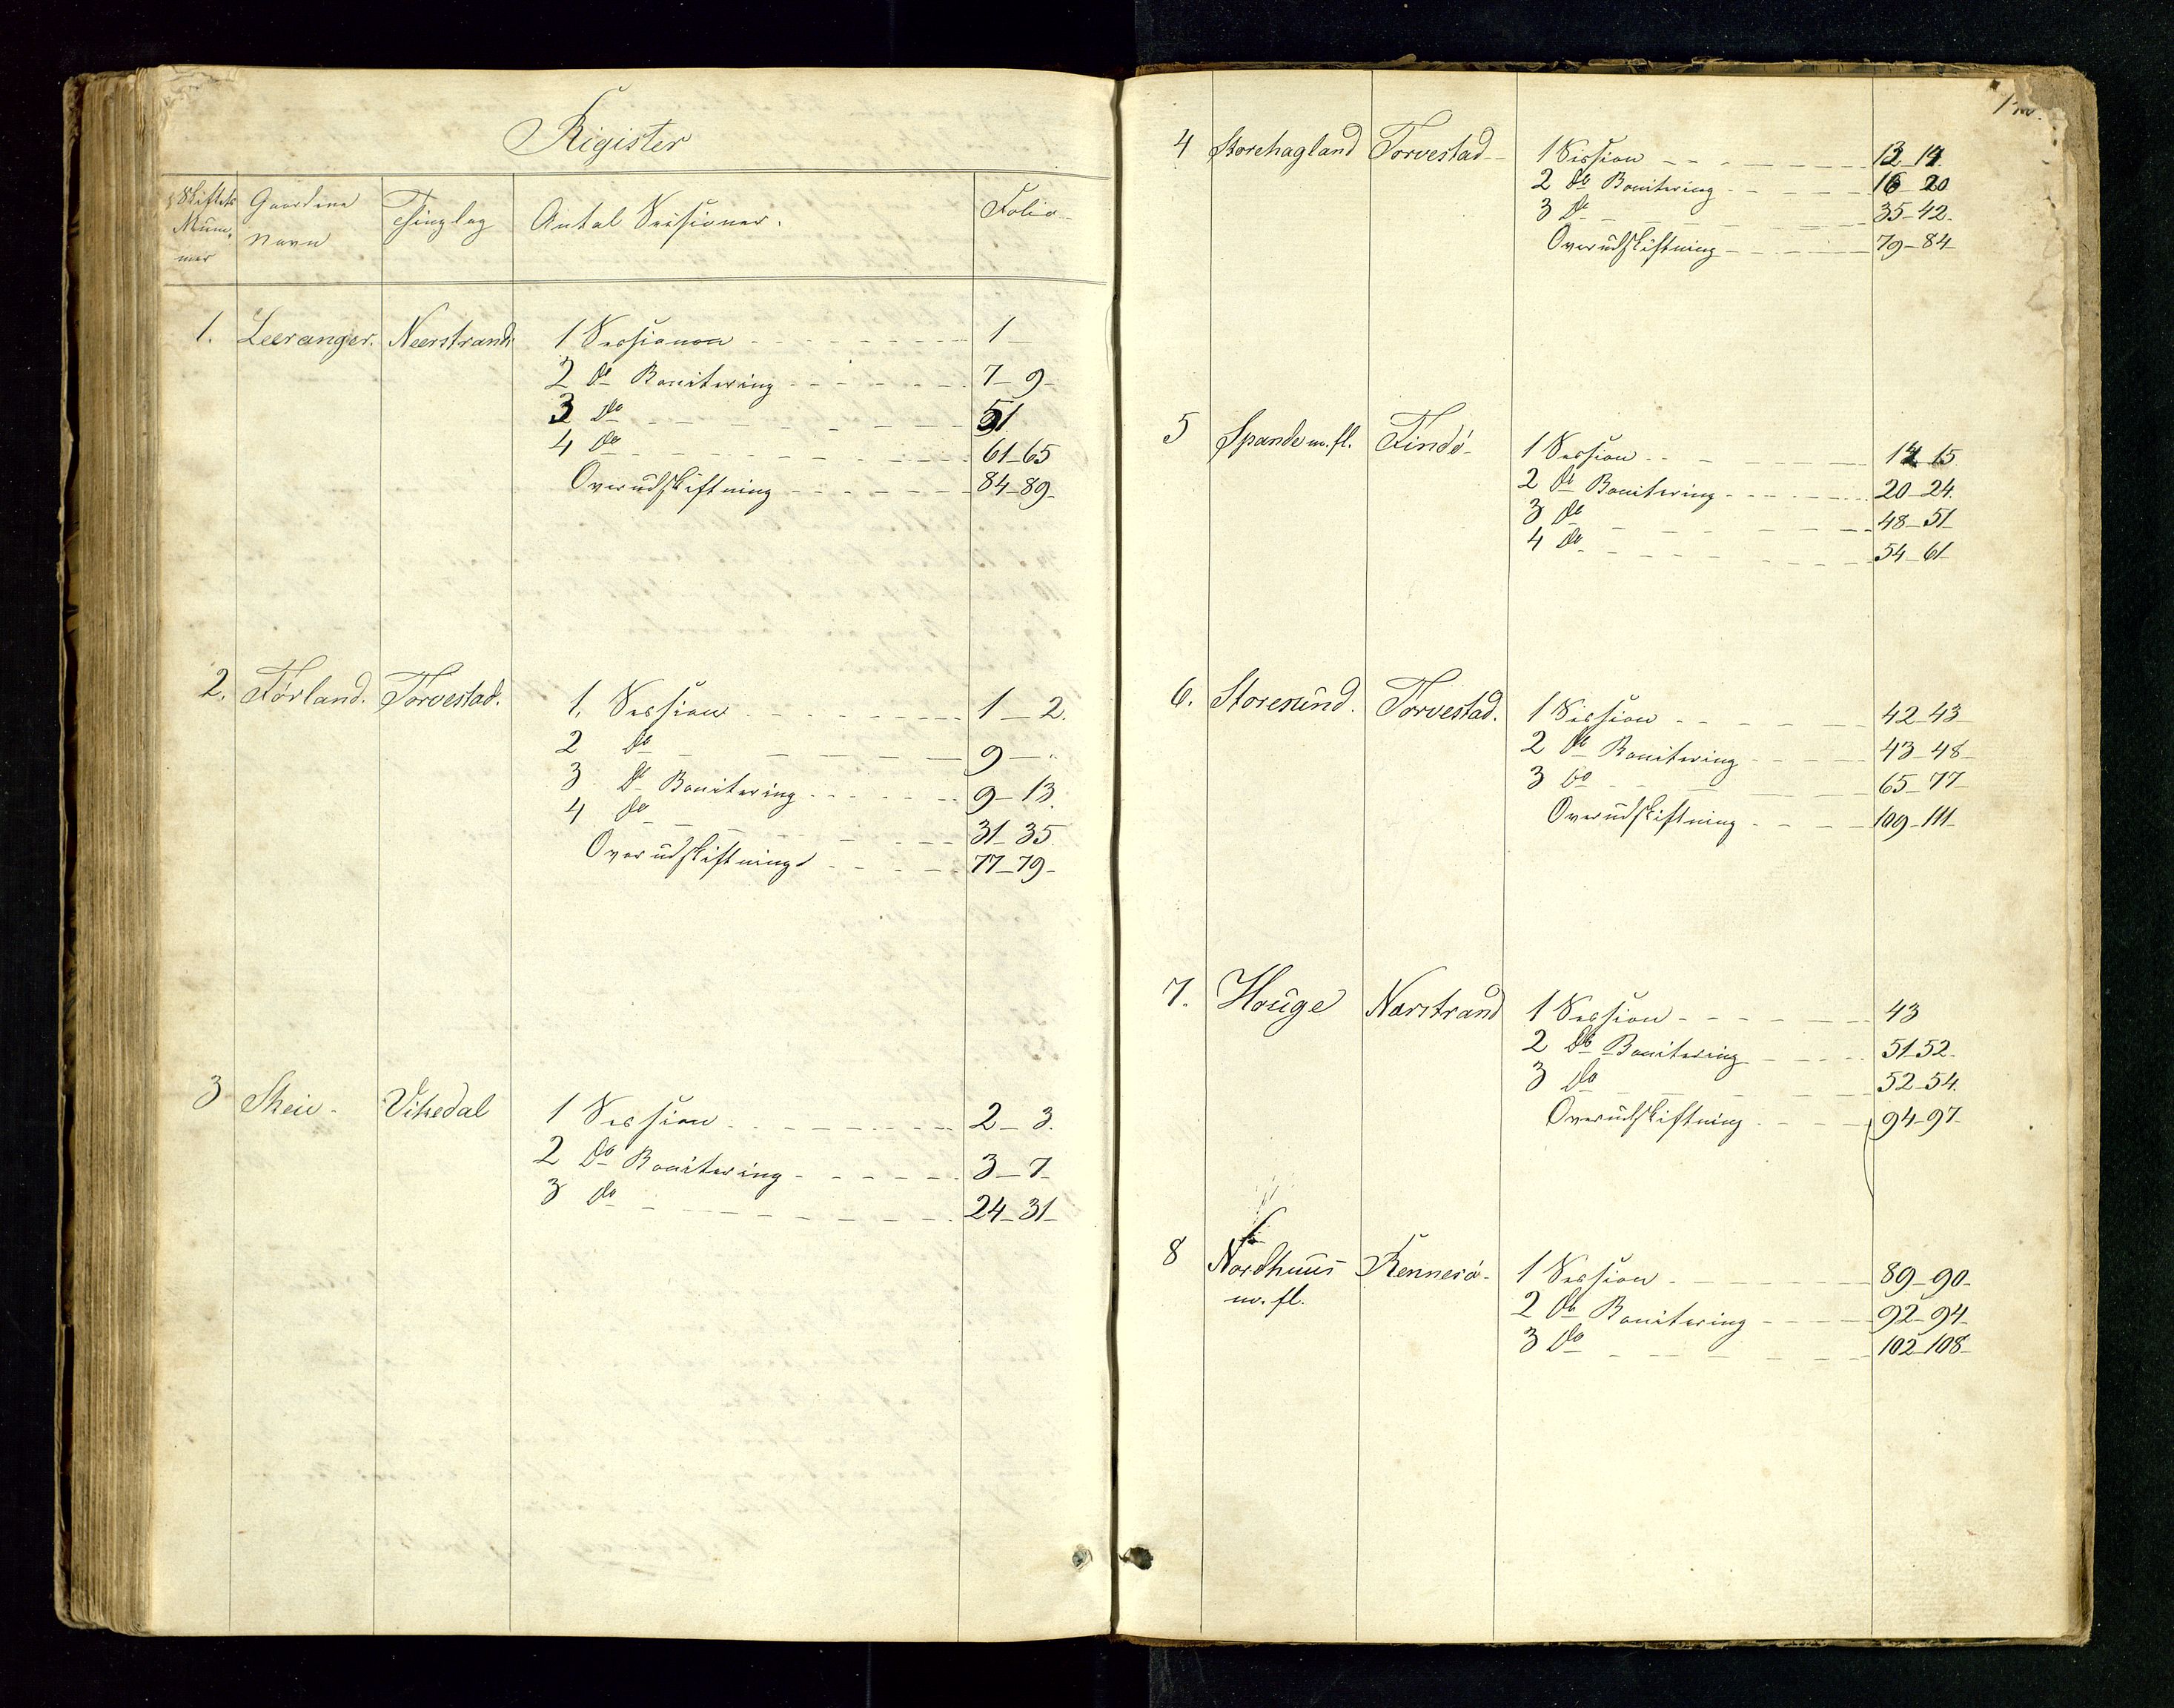 Register
Skiftets Nummer | Gaardens Navn | Thinglag | Antal Sessioner. | Folio
1. Leeranger. Neerstrand 1 Sessionen 1
2 Do Bonitering 7–9
3 Do 51
4 Do 61–65
Overudskiftning 84–89
2. Førland. Torvestad. 1. Session 1–2.
2 Do 9 – "
3 Do Bonitering 9–13.
4 Do 31–35
Overudskiftning 77–79
3 Skeie Vikedal 1 Session 2–3.
2 Do Bonitering 3–7
3 Do 24–31
4 Storehagland Torvestad 1 Session 13–14
2 Do Bonitering 16–20
3 Do 35–42.
Overudskiftning 79–84
5 Spande m. fl. Findö 1 Session 14–15
2 Do Bonitering 20–24.
3 Do 48–51
4 Do 54–61
6. Storesund. Torvestad. 1 Session 42–43
2 Do Bonitering 43–48
3 Do 65–77
Overudskiftning 109–111
7. Houge Narstrand 1 Session 43
2 Do Bonitering 51–52
3 Do 52–54.
Overudskiftning 94–97
8 Nordhuus Rennesö 1 Session 89–90
m. fl.
2 Do Bonitering 92–94
3 Do 102–108